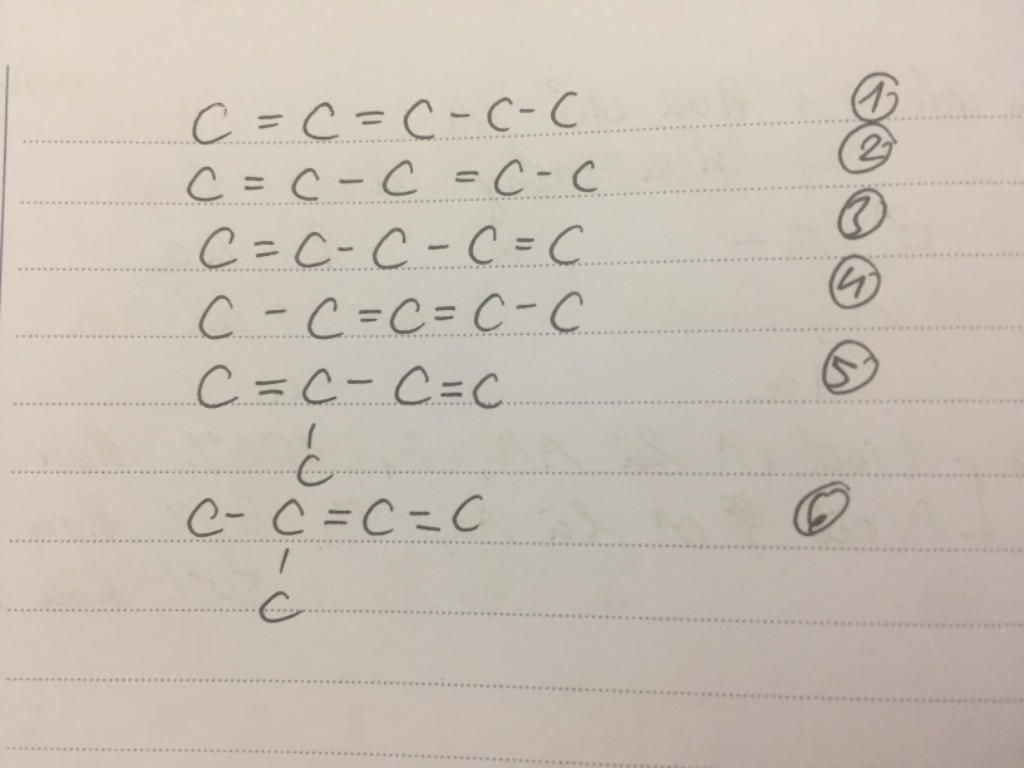 C = C = C - C - C ①
C = C - C = C - C ②
C = C - C - C = C ③
C - C = C = C - C ④
C = C - C = C ⑤
|
C
C - C = C = C ⑥
|
C